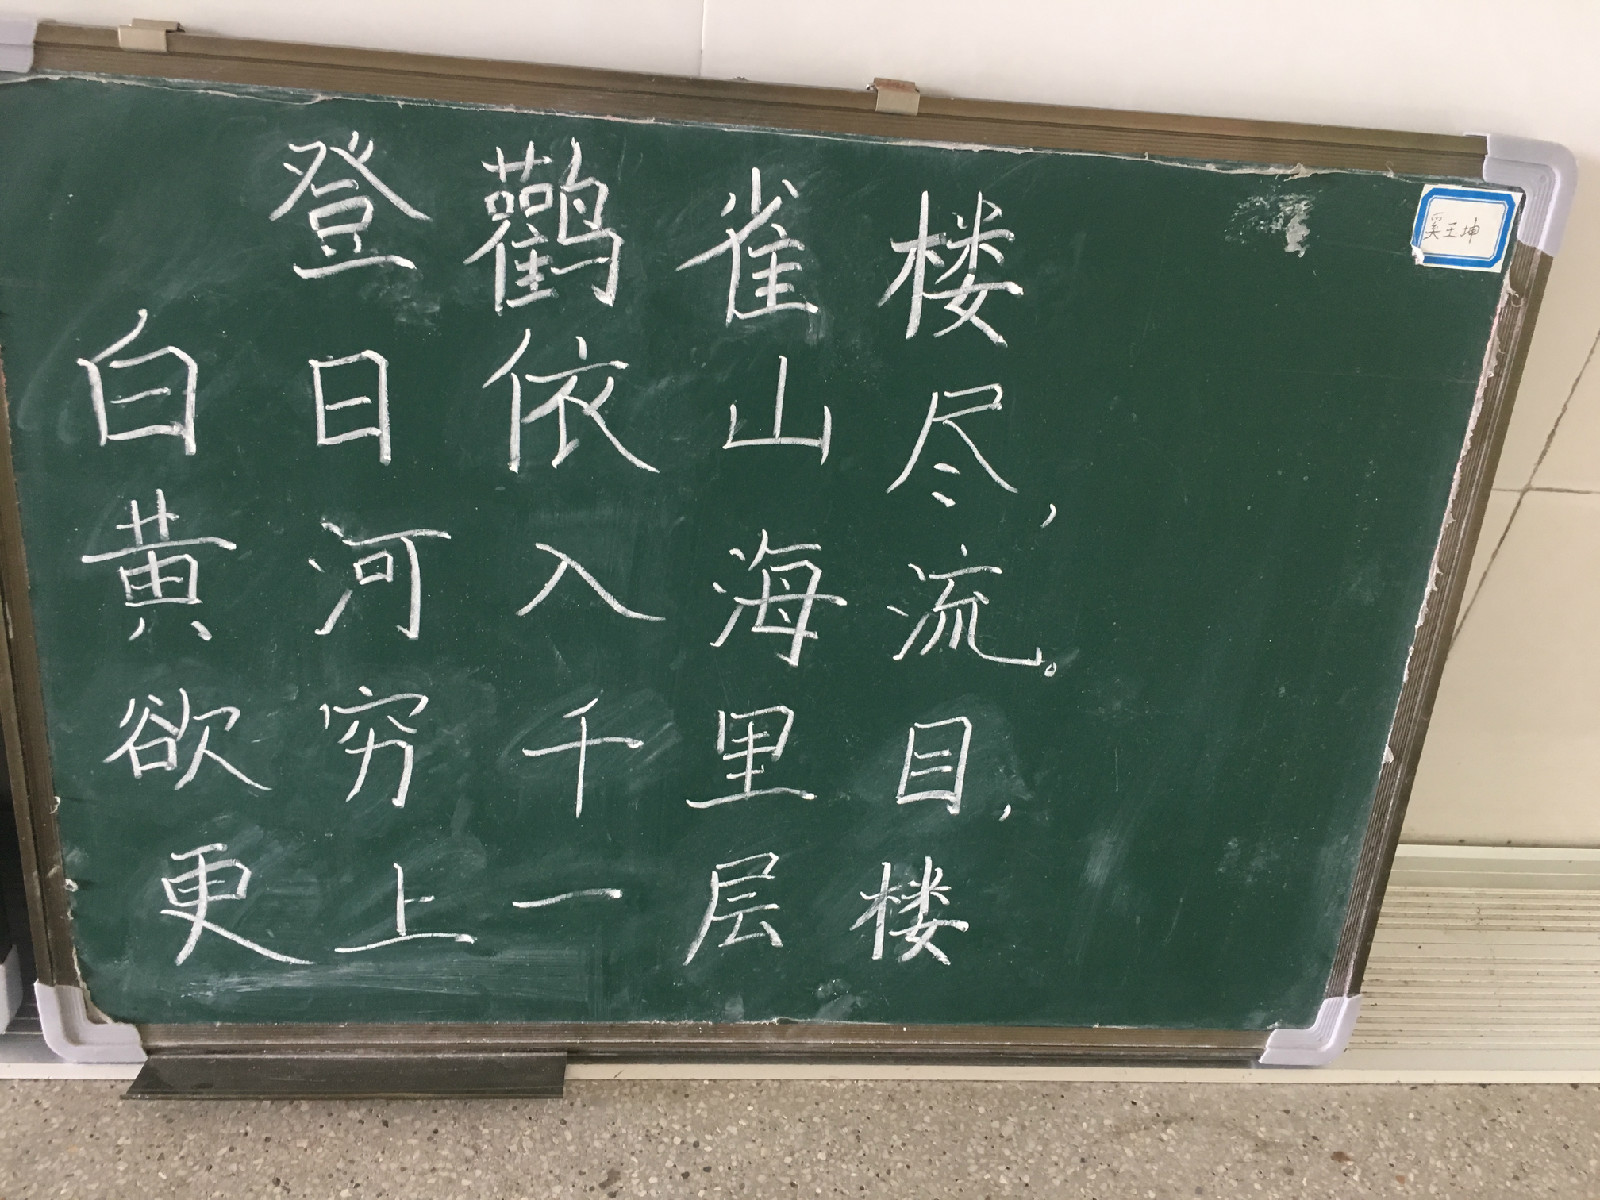 登鹳雀楼
白日依山尽，
黄河入海流。
欲穷千里目，
更上一层楼
奚王坤